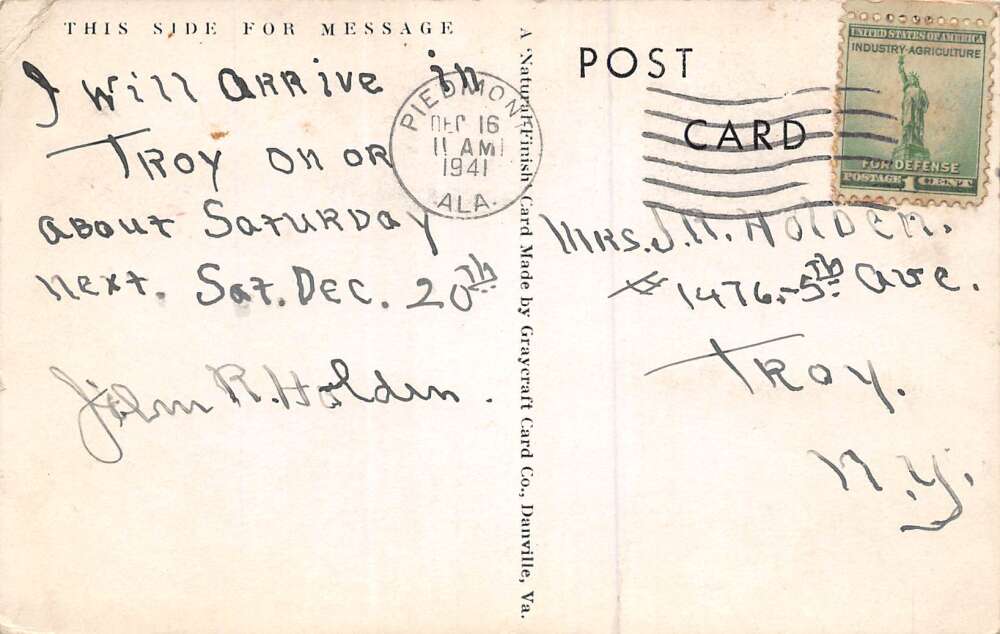 THIS SIDE FOR MESSAGE
I will arrive in
Troy on or
about Saturday
next. Sat. Dec. 20th
John R. Holden.
PIEDMONT
DEC 16
11 AM
1941
ALA.
A "Natural Finish" Card Made by Graycraft Card Co., Danville, Va.
POST
CARD
UNITED STATES OF AMERICA
INDUSTRY-AGRICULTURE
FOR DEFENSE
POSTAGE 1 CENT
Mrs. J. R. Holden.
# 1476.-5th Ave.
Troy.
N.Y.